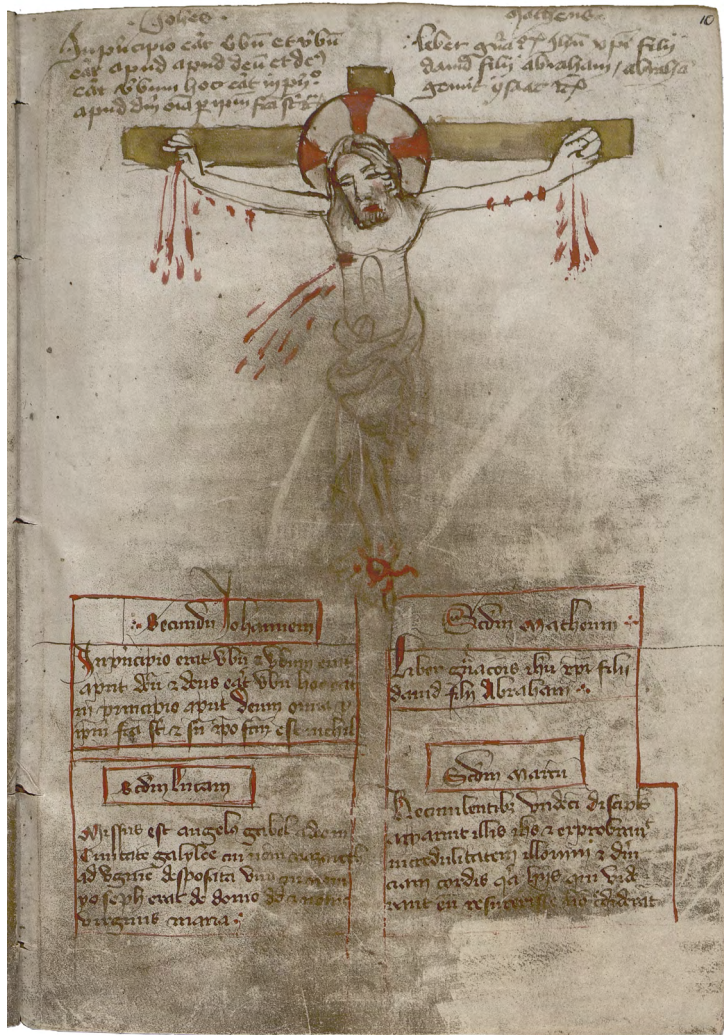 Johes
In pncipio eat vbu et vbu
eat apud apud deu et de9
eat vbum hoc eat in pn°
apud dm oia p ipm fca st
Matheus
liber gna ihu xpi filij
dauid filij abraham / abraha
genuit ysaac
10
Secundu Johannem
In pncipio erat vbu & vbum erat
aput deu & deus eat vbu hoc eat
in principio aput deum omia p
ipm fca st & sn ipo fcm est nichil
scdm lucam
Missus est angelus gabel a deo in
Ciuitate galylee cui nomen nazareth
ad vgine desposata viro
yoseph erat de domo dd & nome
virginis maria
Scdm Matheum
Liber gnacois ihu xpi filij
dauid filij Abraham
Scdm Marcu
Recumbentibz vndeci discipls
apparuit illis ihs & exprobrauit
incredulitatem illorum & duri
ciam cordis qa hijs qui vide
rant eu resurexisse no crediderat